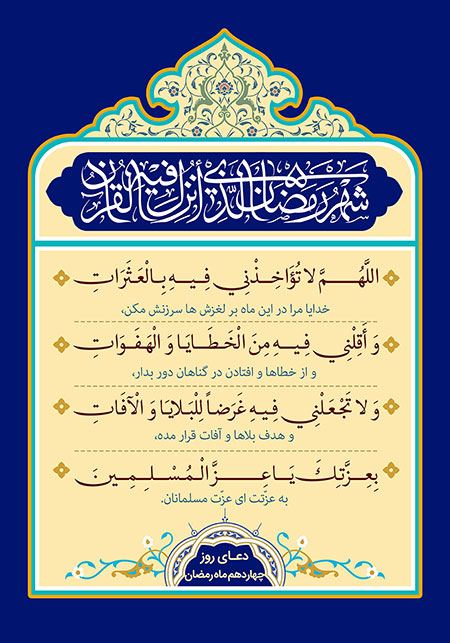 شهر رمضان الذي أنزل فيه القرآن
اللَّهُمَّ لا تُؤَاخِذْنِي فِيهِ بِالْعَثَرَاتِ
خدایا مرا در این ماه بر لغزش ها سرزنش مکن،
وَ أَقِلْنِي فِيهِ مِنَ الْخَطَايَا وَ الْهَفَوَاتِ
و از خطاها و افتادن در گناهان دور بدار،
وَ لا تَجْعَلْنِي فِيهِ غَرَضاً لِلْبَلايَا وَ الْآفَاتِ
و هدف بلاها و آفات قرار مده،
بِعِزَّتِكَ يَا عِزَّ الْمُسْلِمِينَ
به عزّتت ای عزّت مسلمانان.
دعای روز
چهاردهم ماه رمضان